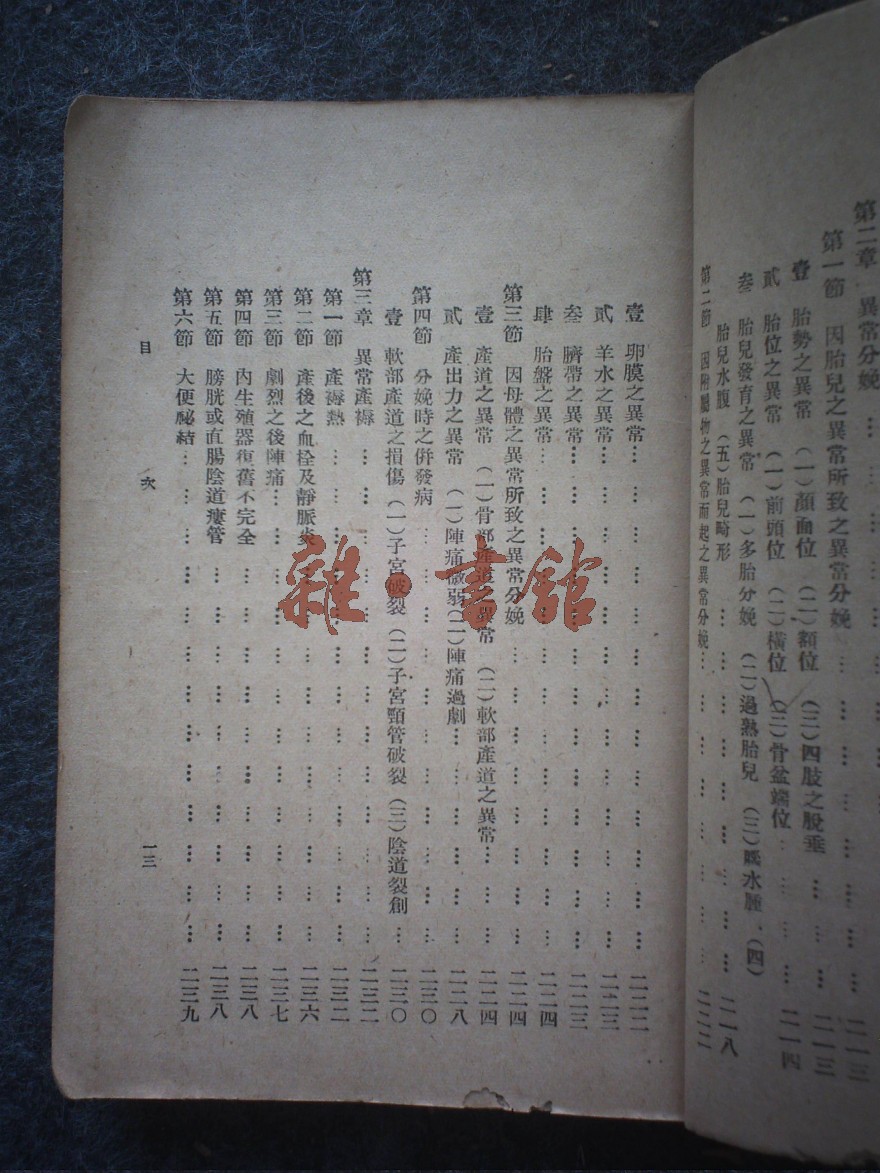 第二章 異常分娩……二一三
第一節 因胎兒之異常所致之異常分娩……二一三
壹 胎勢之異常 (一)顏面位 (二)額位 (三)四肢之脫垂……二一三
貳 胎位之異常 (一)前頭位 (二)橫位 (三)骨盆端位……二一四
叁 胎兒發育之異常 (一)多胎分娩 (二)過熟胎兒 (三)腦水腫、(四)
胎兒水腹 (五)胎兒畸形……二一八
第二節 因附屬物之異常而起之異常分娩……二二二
壹 卵膜之異常……二二二
貳 羊水之異常……二二三
叁 臍帶之異常……二二三
肆 胎盤之異常……二二四
第三節 因母體之異常所致之異常分娩……二二四
壹 產道之異常 (一)骨部產道之異常 (二)軟部產道之異常……二二四
貳 產出力之異常 (一)陣痛微弱(二)陣痛過劇……二二八
第四節 分娩時之併發病……二三〇
壹 軟部產道之損傷 (一)子宮破裂 (二)子宮頸管破裂 (三)陰道裂創……二三〇
第三章 異常產褥……二三二
第一節 產褥熱……二三二
第二節 產後之血栓及靜脈炎……二三六
第三節 劇烈之後陣痛……二三七
第四節 內生殖器復舊不完全……二三八
第五節 膀胱或直腸陰道瘻管……二三八
第六節 大便祕結……二三九
目 次
一三
雜·書館